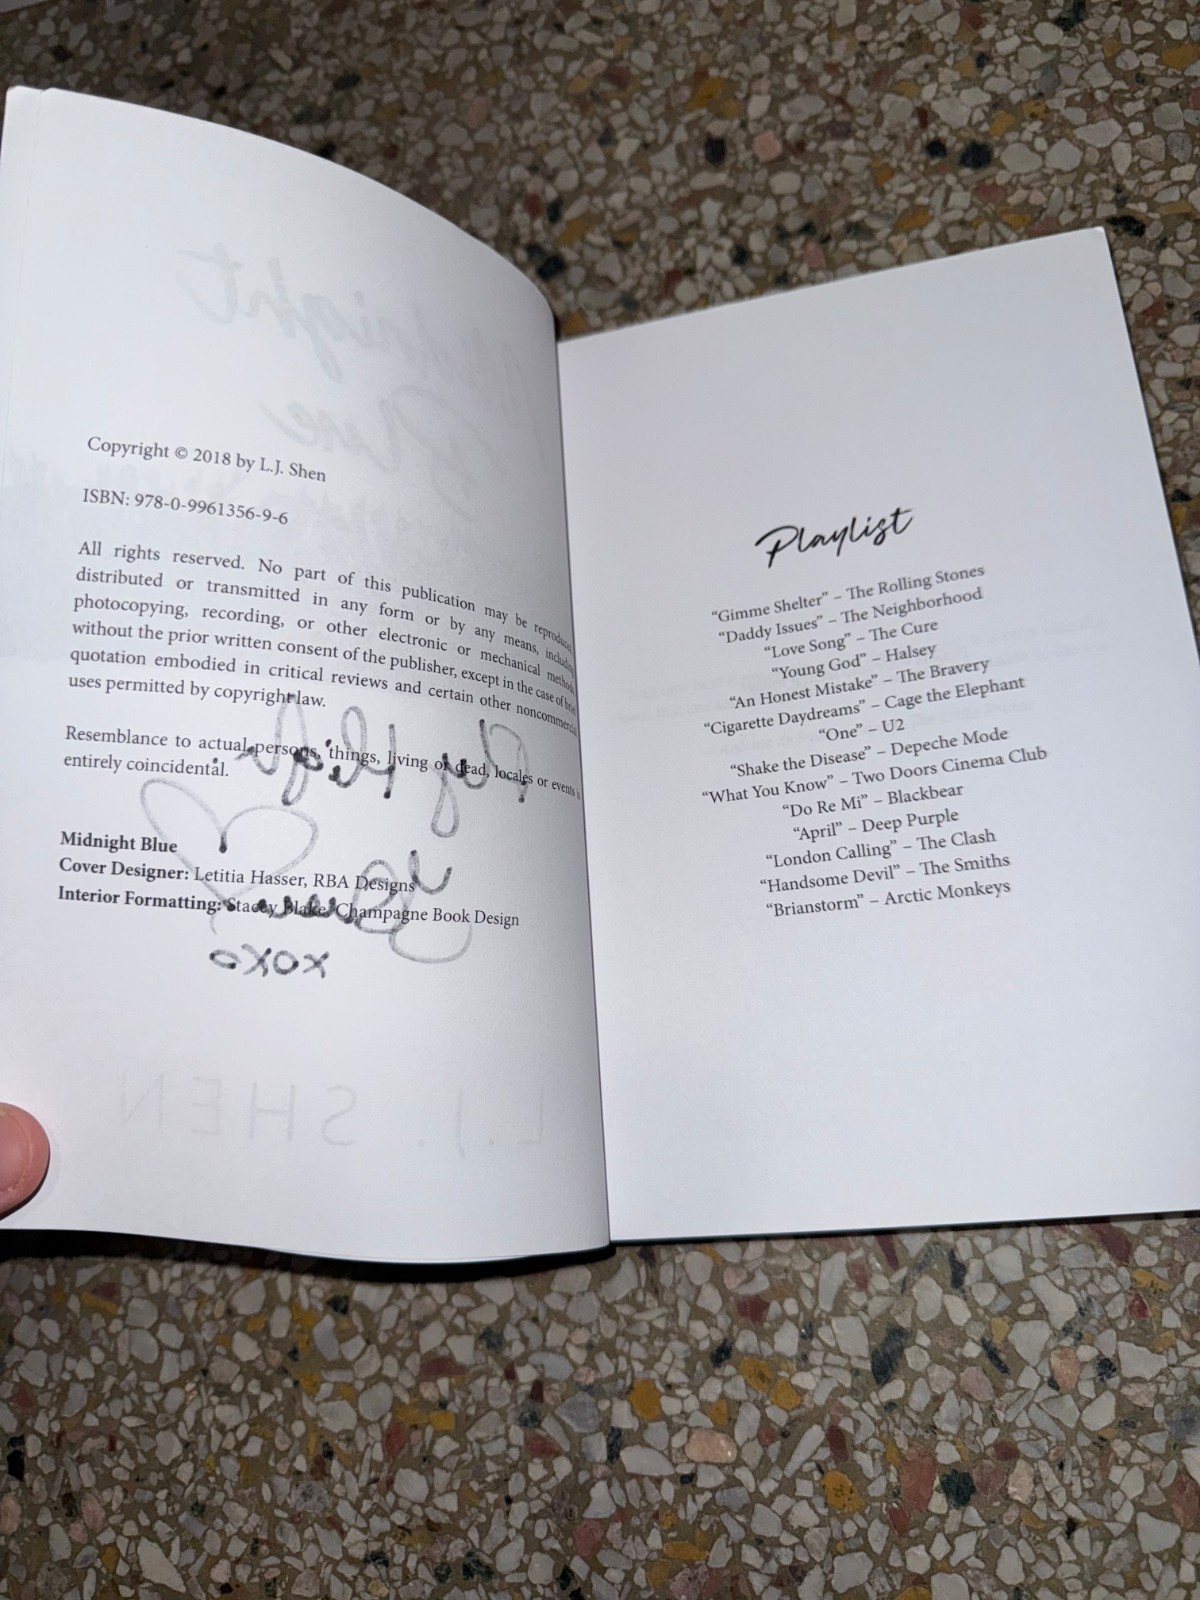 Midnight
Blue
Copyright © 2018 by L.J. Shen
ISBN: 978-0-9961356-9-6
All rights reserved. No part of this publication may be reproduced,
distributed or transmitted in any form or by any means, including
photocopying, recording, or other electronic or mechanical methods,
without the prior written consent of the publisher, except in the case of brief
quotation embodied in critical reviews and certain other noncommercial
uses permitted by copyright law.
Resemblance to actual persons, things, living or dead, locales or events is
entirely coincidental.
Midnight Blue
Cover Designer: Letitia Hasser, RBA Designs
Interior Formatting: Stacey Blake, Champagne Book Design
xoxo
L.J. SHEN
Playlist
“Gimme Shelter” – The Rolling Stones
“Daddy Issues” – The Neighborhood
“Love Song” – The Cure
“Young God” – Halsey
“An Honest Mistake” – The Bravery
“Cigarette Daydreams” – Cage the Elephant
“One” – U2
“Shake the Disease” – Depeche Mode
“What You Know” – Two Doors Cinema Club
“Do Re Mi” – Blackbear
“April” – Deep Purple
“London Calling” – The Clash
“Handsome Devil” – The Smiths
“Brianstorm” – Arctic Monkeys